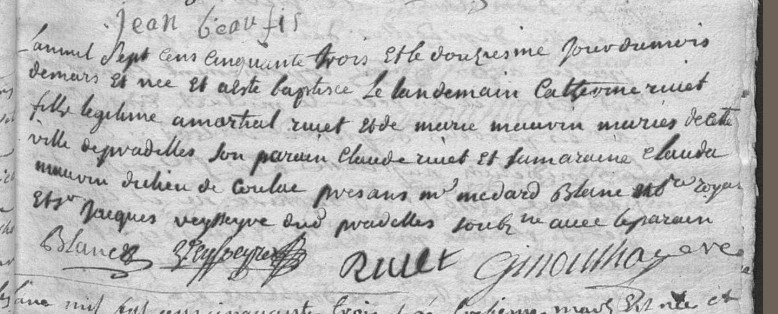 Jean beaufis
Lanmil sept cens cinquante trois et le douzesme jour du mois
demars Et née Et a este baptisée Le landemain Catherine riuet
fille legitime a martial riuet et de marie mauuin mariés de cette
ville de pradelles son parain Claude riuet Et sa maraine Clauda
mauuin du lieu de Coulac presans mr medard Blanc royal
Et sr Jacques veysseyre dud pradelles soubz ne auec le parain
Blanc Veysseyre Riuet
Lan mil sept cens cinquante trois mars Est née et